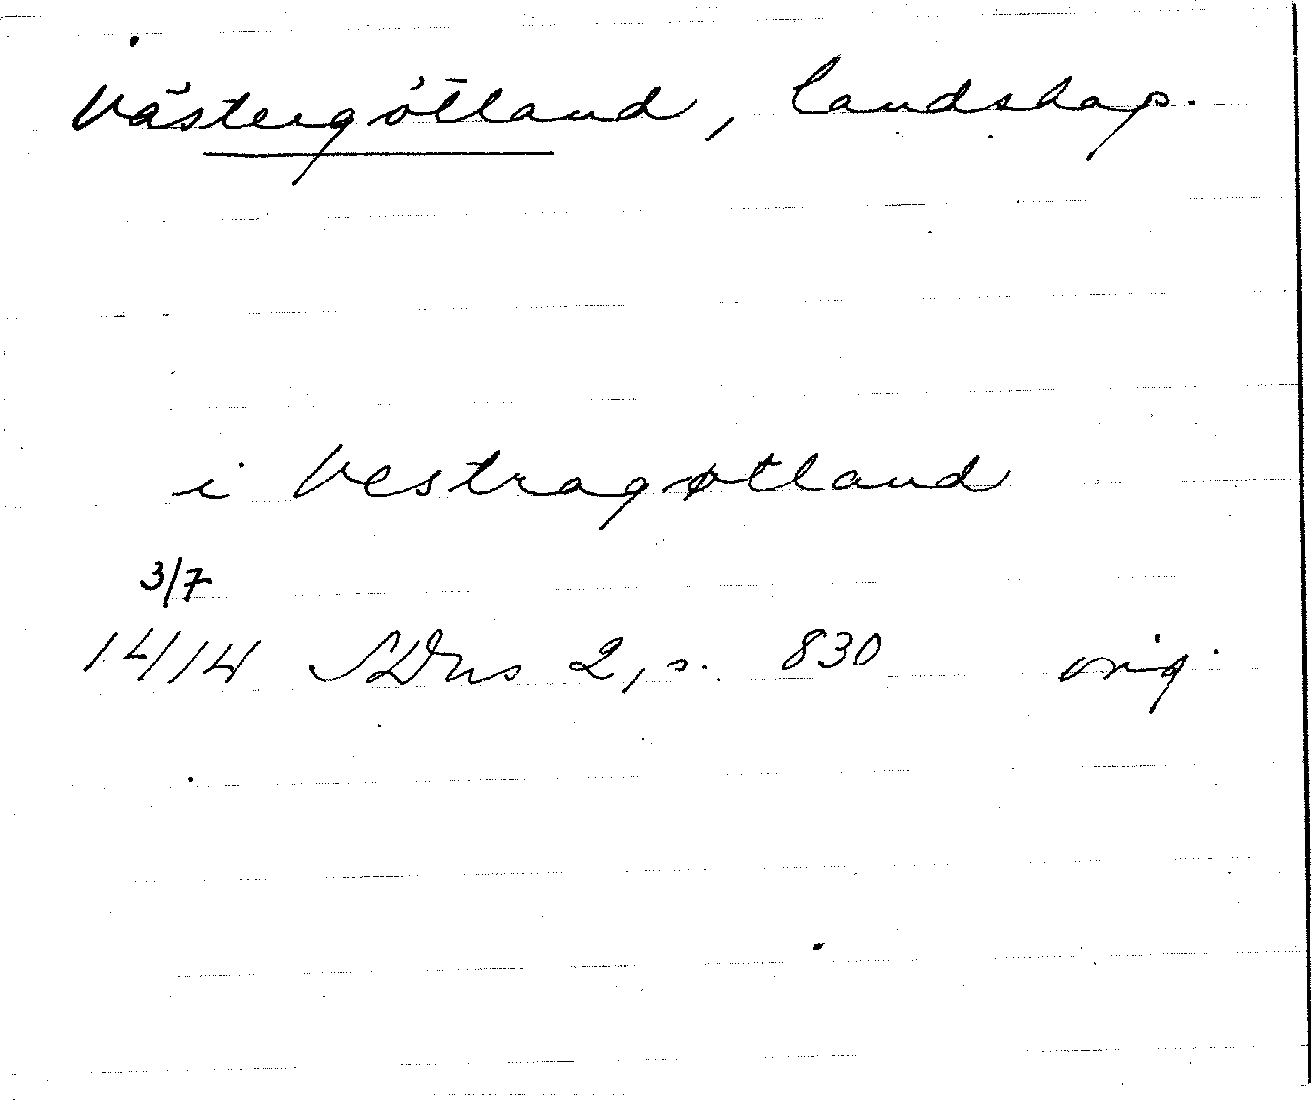 Västergötland, landskap.
i Vestragøtland
3/7
1414 SDns 2, s. 830 orig.